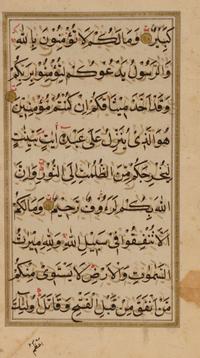 كبير وما لكم لا تؤمنون بالله
والرسول يدعوكم لتؤمنوا بربكم
وقد اخذ ميثاقكم ان كنتم مؤمنين
هو الذي ينزل على عبده ايت بينت
ليخرجكم من الظلمات الى النور وان
الله بكم لرءوف رحيم وما لكم
الا تنفقوا في سبيل الله ولله ميراث
السموات والارض لا يستوي منكم
من انفق من قبل الفتح وقاتل اولئك